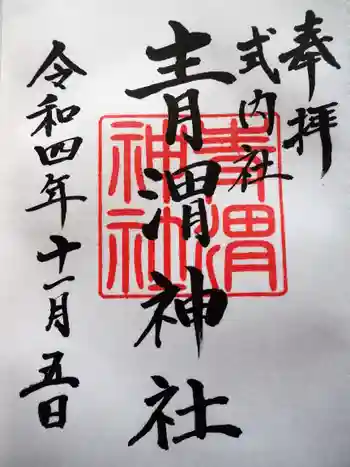 奉拝
式内社
青渭神社
青渭神社
令和四年十一月五日